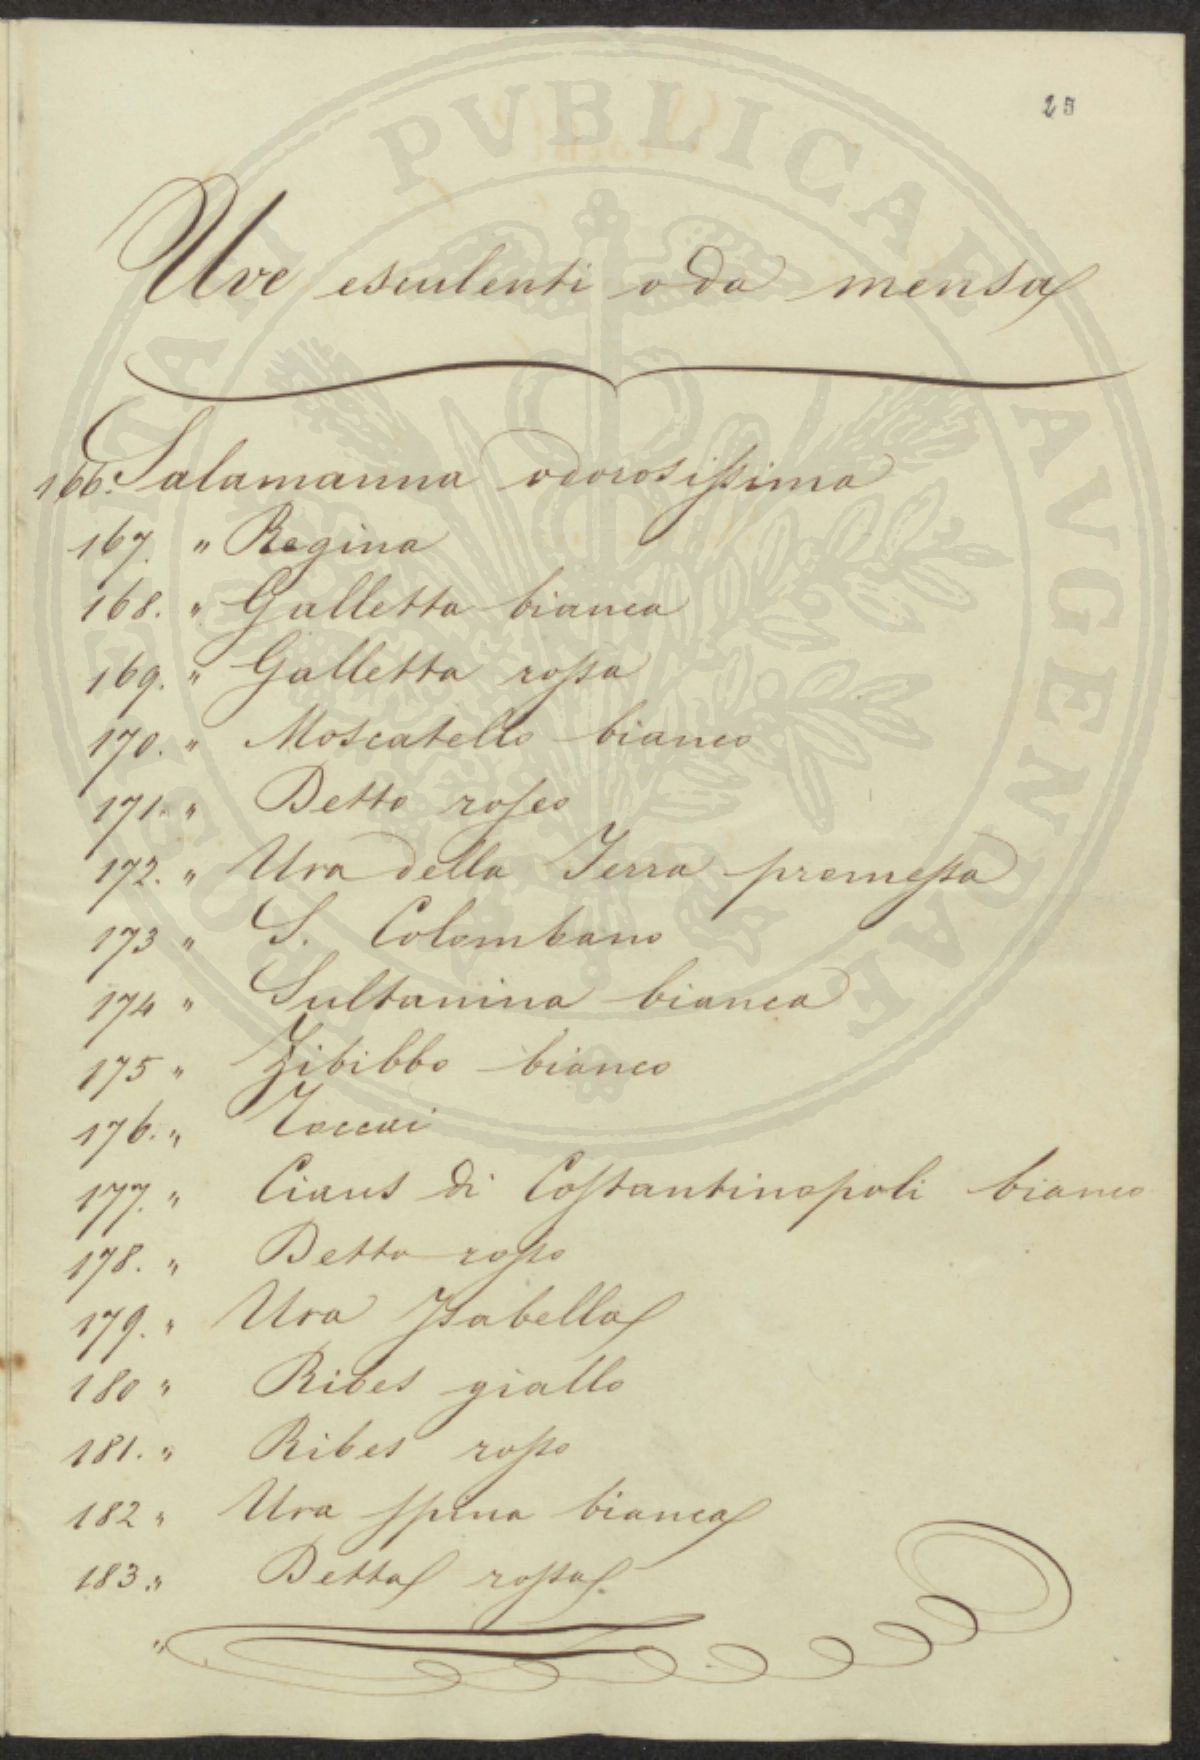 25
Uve esculenti o da mensa
166. Salamanna odorosissima
167. " Regina
168. " Galletta bianca
169. " Galletta rossa
170. " Moscatello bianco
171. " Detto roseo
172. " Uva della Terra promessa
173 " S. Colombano
174 " Sultanina bianca
175 " Zibibbo bianco
176. " Toccai
177. " Ciaus di Costantinopoli bianco
178. " Detto rosso
179. " Uva Isabella
180 " Ribes giallo
181. " Ribes rosso
182 " Uva spina bianca
183. " Detta rossa.
"
PVBLICAE AVGENDAE